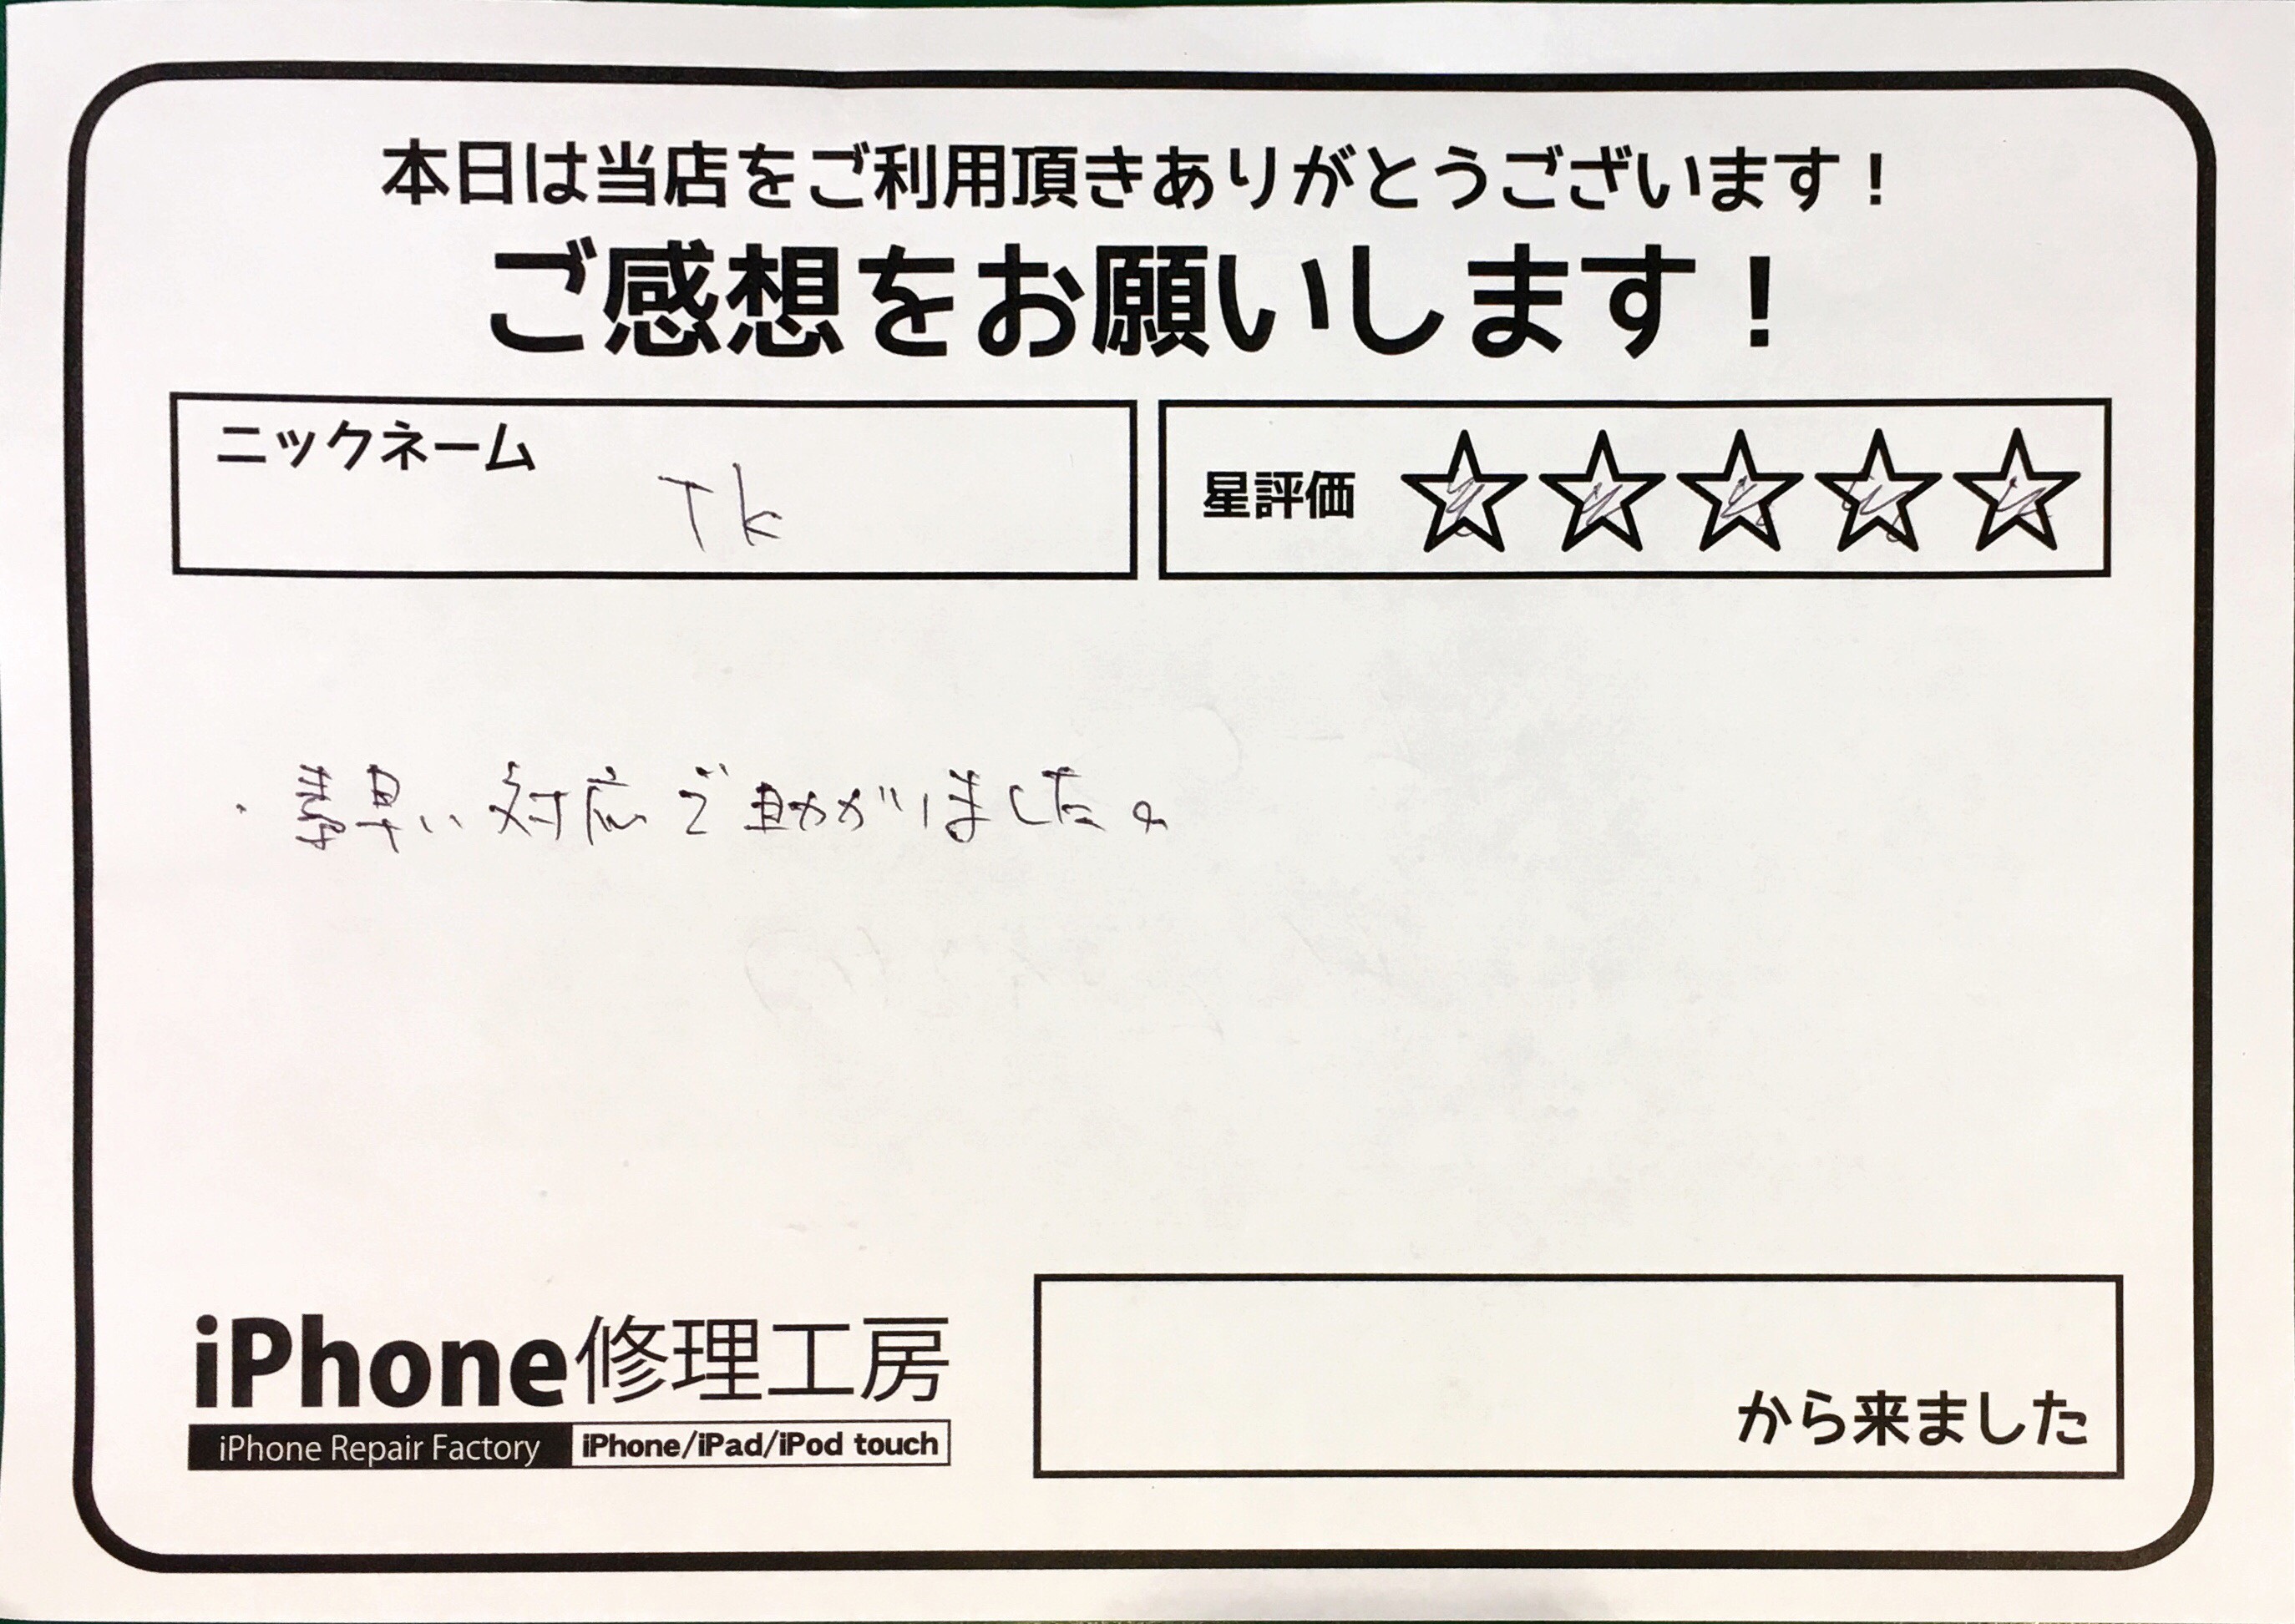 本日は当店をご利用頂きありがとうございます！
ご感想をお願いします！
ニックネーム
Tk
星評価 ☆☆☆☆☆
・素早い対応で助かりました。
iPhone修理工房
iPhone Repair Factory iPhone/iPad/iPod touch
から来ました